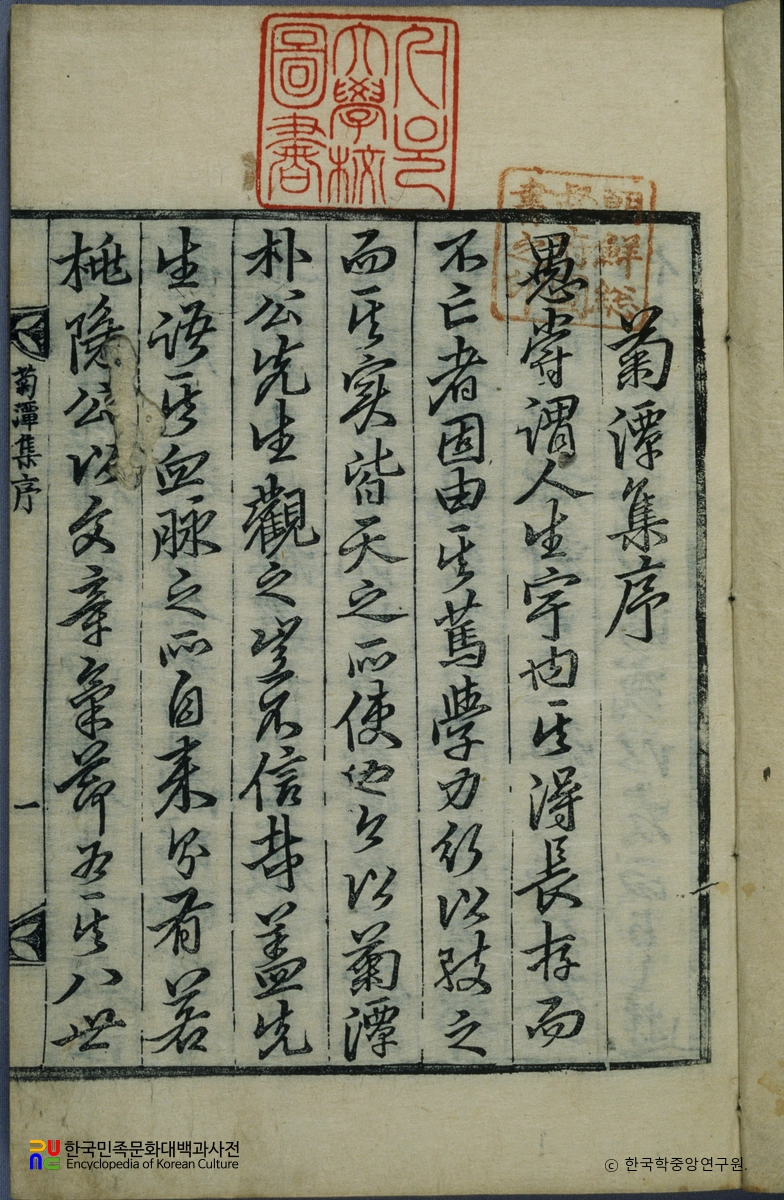 서울大學校圖書
朝鮮総督府圖書之印
菊潭集序
愚嘗謂人生宇内其得長存而
不亡者固由其篤學力行以致之
而其実皆天之所使也今以菊潭
朴公先生觀之豈不信哉盖先
生語其血脉之所自来則有若
桃隐公以文章氣節爲其八世
菊潭集序
一
한국민족문화대백과사전
Encyclopedia of Korean Culture
© 한국학중앙연구원.